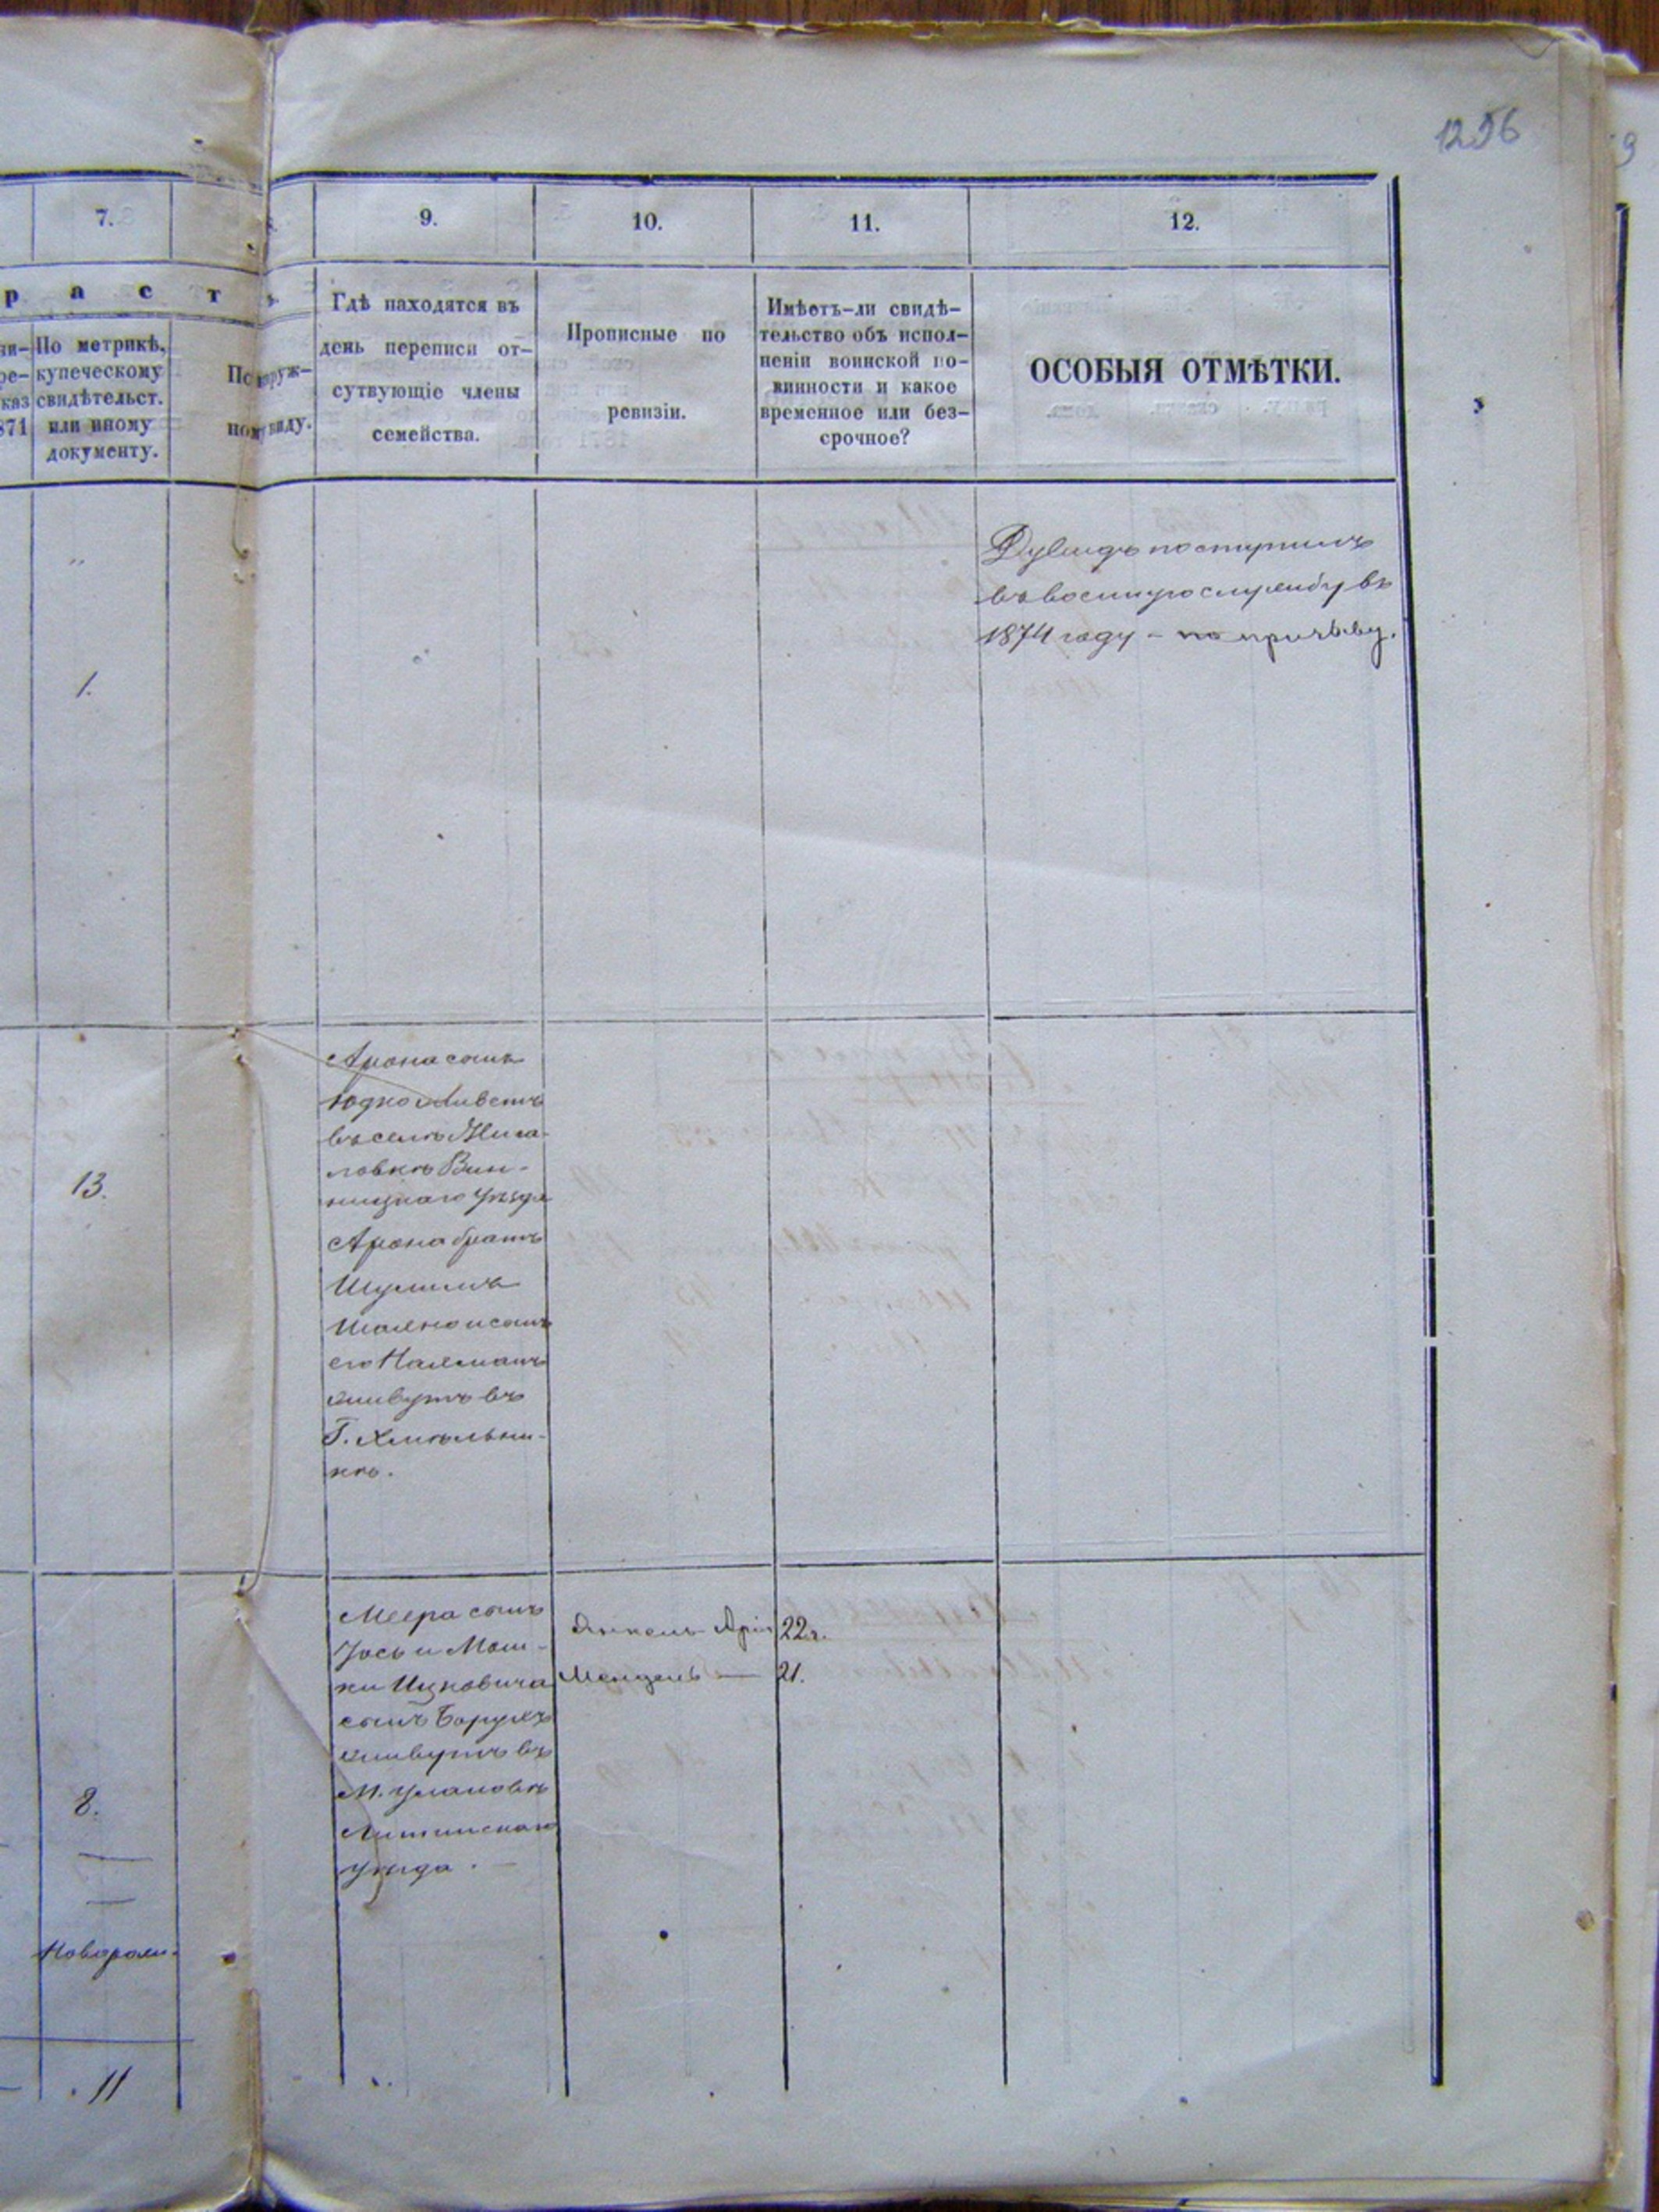 1256
7.
9.
10.
11.
12.
р а с т
По метрикѣ,
купеческому
свидѣтельст.
или иному
документу.
871
По наруж-
ному виду.
Гдѣ находятся въ
день переписи от-
сутвующіе члены
семейства.
Прописные по
ревизіи.
Имѣетъ-ли свидѣ-
тельство объ испол-
неніи воинской по-
винности и какое
временное или без-
срочное?
ОСОБЫЯ ОТМѢТКИ.
1.
Дувидъ поступилъ
въ военную службу въ
1874 году – по призыву.
13.
Арона сынъ
Юдко живетъ
въ селѣ
Вин-
ницкаго уѣзда
Арона братъ
Шулимъ
Шаяна и сынъ
его Нахманъ
живутъ въ
Г. Хмѣльни-
кѣ.
8.
Новорож.
11
Меера сынъ
Іось и Мош-
ки Ицковича
сынъ Борухъ
живутъ въ
М. Улановѣ
Литинскаго
уѣзда.
Янкель 22 г.
Мендель — 21.